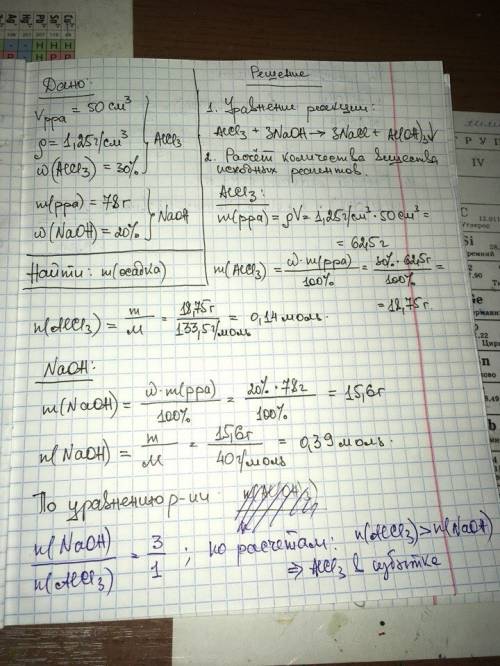 Дано:
Vрра = 50 см³
ρ = 1,25г/см³
ω(AlCl₃) = 30%
AlCl₃
m(рра) = 78г
ω(NaOH) = 20%
NaOH
Найти: m(осадка)
Решение
1. Уравнение реакции:
AlCl₃ + 3NaOH → 3NaCl + Al(OH)₃↓
2. Расчёт количества вещества
исходных реагентов.
AlCl₃:
m(рра) = ρV = 1,25г/см³ · 50 см³ =
= 62,5г
m(AlCl₃) = ω·m(рра)/100% = 30%·62,5г/100% =
= 18,75г.
n(AlCl₃) = m/M = 18,75г/133,5г/моль = 0,14 моль.
NaOH:
m(NaOH) = ω·m(рра)/100% = 20%·78г/100% = 15,6г
n(NaOH) = m/M = 15,6г/40г/моль = 0,39 моль.
По уравнению р-ии
n(NaOH)/n(AlCl₃) = 3/1 ; по расчетам: n(AlCl₃) > n(NaOH)
⇒ AlCl₃ в избытке
IV
C
12,011
Si
Ti